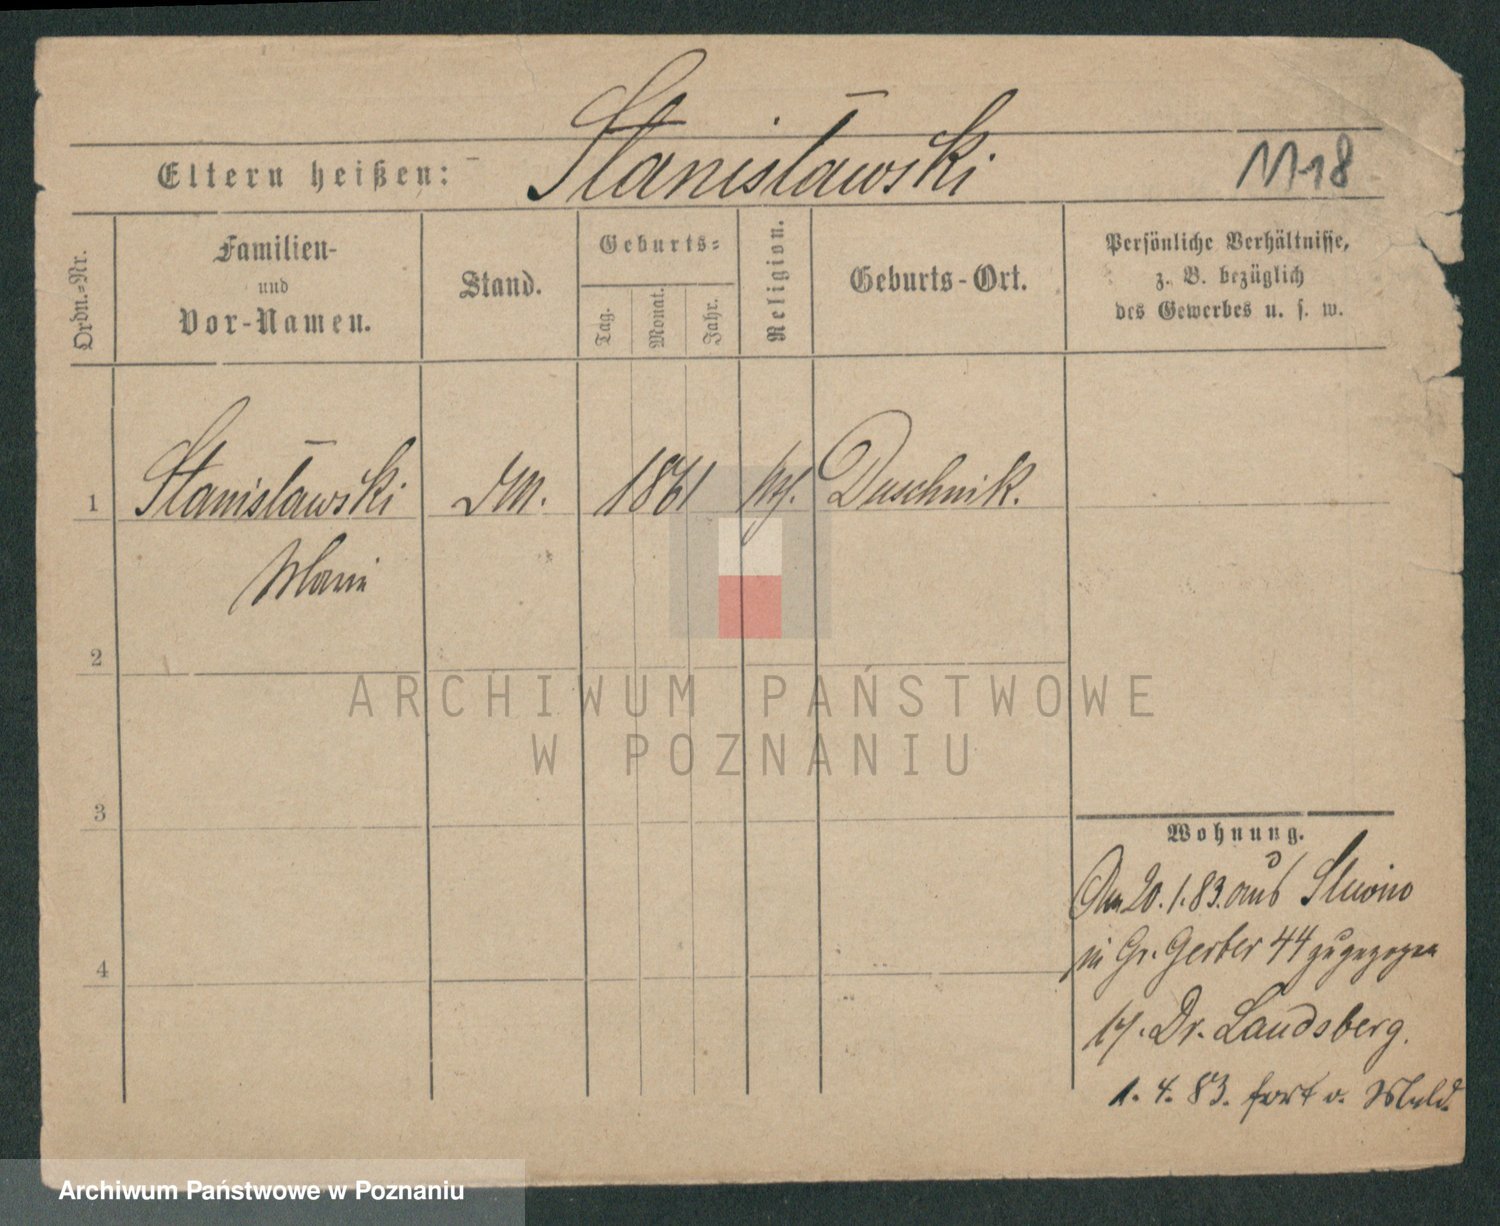 Stanisławski
Eltern heißen:
11118
Ordn.-Nr.
Familien-
und
Vor-Namen.
Stand.
Geburts-
Tag.
Monat.
Jahr.
Religion.
Geburts-Ort.
Persönliche Verhältnisse,
z. B. bezüglich
des Gewerbes u. s. w.
1
Stanisławski
DM.
1861
kth.
Duschnik.
Marie
2
ARCHIWUM PAŃSTWOWE
W POZNANIU
3
Wohnung.
Am 20. 1. 83. aus
in Gr. Gerber 44 zugezogen
Dr. Landsberg.
4
1. 4. 83. fort o. Meld.
Archiwum Państwowe w Poznaniu